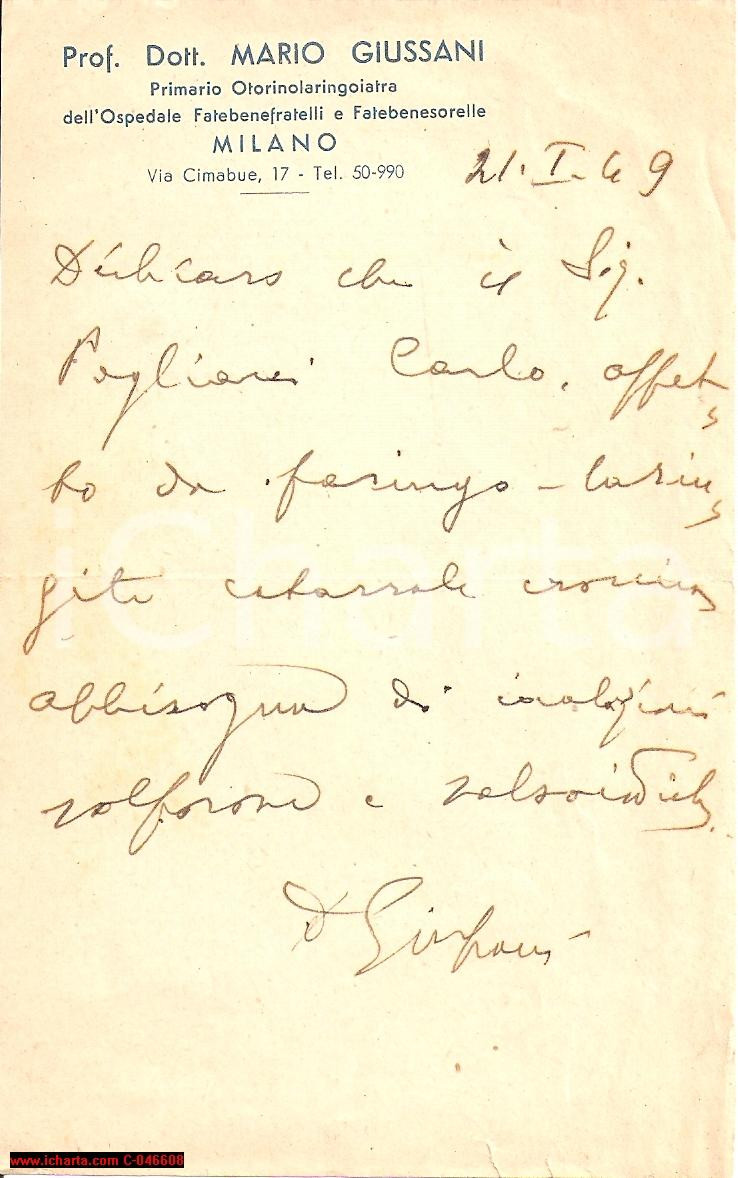 Prof. Dott. MARIO GIUSSANI
Primario Otorinolaringoiatra
dell'Ospedale Fatebenefratelli e Fatebenesorelle
MILANO
Via Cimabue, 17 - Tel. 50-990
21. I. 49
Dichiaro che il Sig.
Carlo, affet-
to da faringo-larin-
gite catarrale cronica
abbisogna di inalazioni
solforose e salsoiodiche.
D Giussani
iCharta
www.icharta.com C-046608